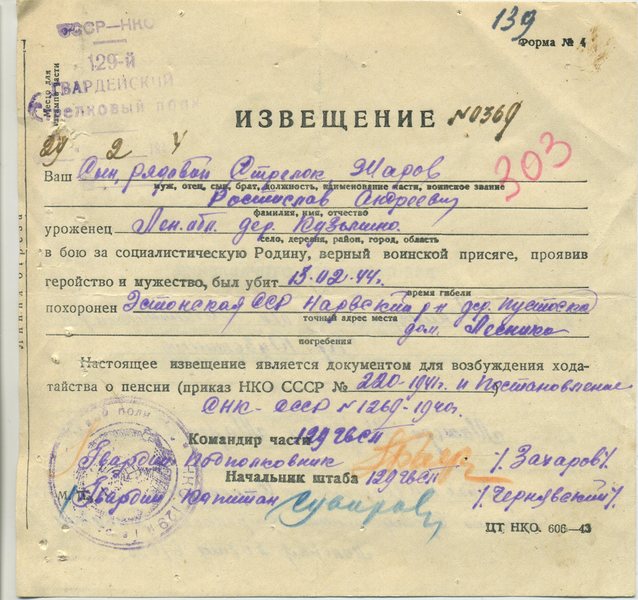 139
СССР-НКО
Форма № 4
129-й
ГВАРДЕЙСКИЙ
стрелковый полк
Место для
штампа части
ИЗВЕЩЕНИЕ №0369
29 2 4
303
Ваш Сын, рядовой Стрелок, Жаров
муж, отец, сын, брат, должность, наименование части, воинское звание
Ростислав Андреевич
фамилия, имя, отчество
уроженец Лен. обл. дер. Кузьмино
село, деревня, район, город, область
в бою за социалистическую Родину, верный воинской присяге, проявив
геройство и мужество, был убит 13.02.44г.
время гибели
похоронен Эстонская ССР Нарвский р-н дер. Пустоска
точный адрес места
дом. Лесника
погребения
Настоящее извещение является документом для возбуждения хода-
тайства о пенсии (приказ НКО СССР № 220-1941г. и Постановление
СНК-СССР №1269-1940г.
Командир части 129гвсп
Гвардии Подполковник /Захаров/.
Начальник штаба 129гвсп
М. П.
Гвардии Капитан /Чернявский/.
ЦТ НКО. 606—43